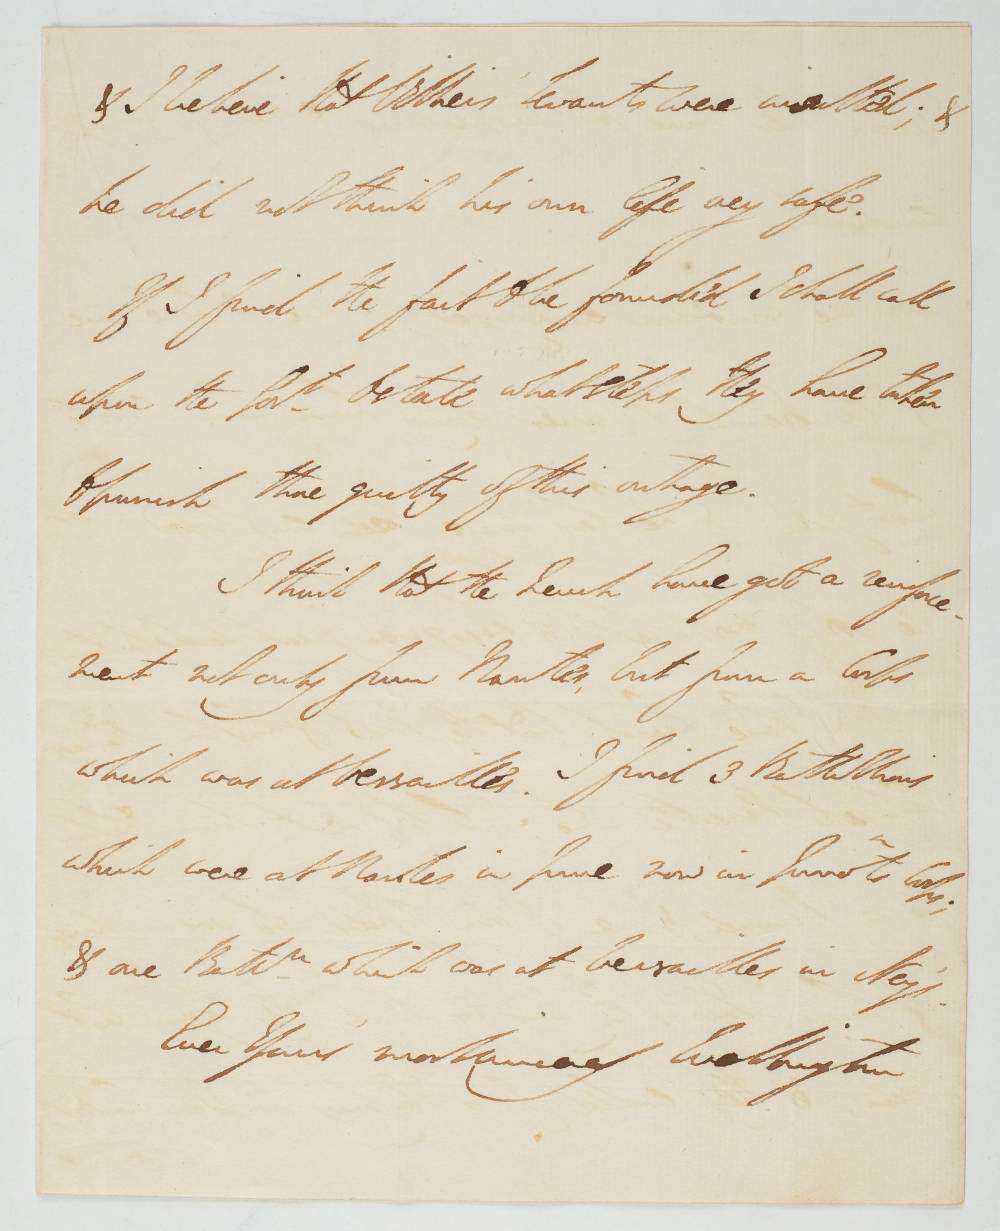 & I believe that Villiers' servants were insulted; &
he did not think his own life very safe.
If I find the fact to be founded I shall call
upon the Govt. to state what steps they have taken
to punish those guilty of this outrage.
I think that the French have got a reinforce-
ment not only from Nantes, but from a Corps
which was at Versailles. I find 3 Battallions
which were at Nantes in June now in Junot's Corps;
& one Battn. which was at Versailles in Ney's.
Ever Yours most sincerely Wellington